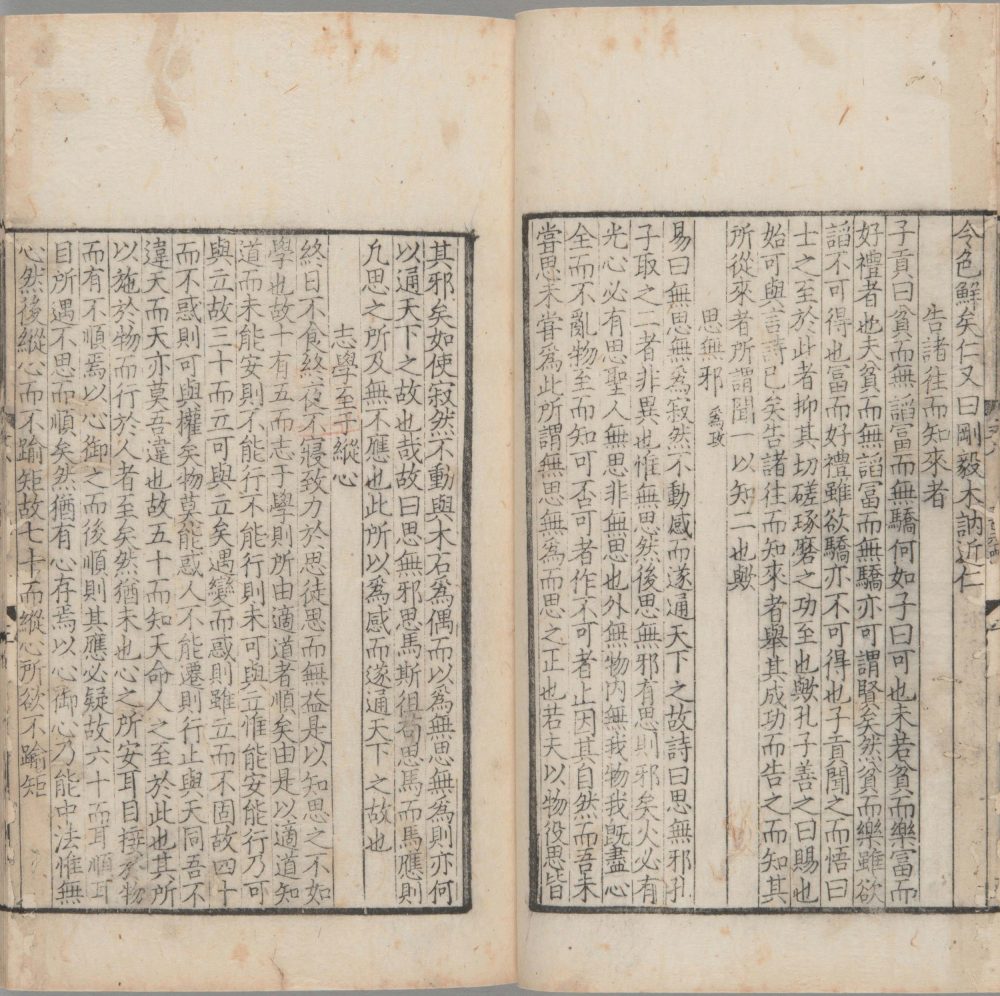 令色鮮矣仁又曰剛毅木訥近仁
告諸往而知來者
子貢曰貧而無諂富而無驕何如子曰可也未若貧而樂富而
好禮者也夫貧而無諂富而無驕亦可謂賢矣然貧而樂雖欲
諂不可得也富而好禮雖欲驕亦不可得也子貢聞之而悟曰
士之至於此者抑其切磋琢磨之功至也歟孔子善之曰賜也
始可與言詩已矣告諸往而知來者舉其成功而告之而知其
所從來者所謂聞一以知二也歟
思無邪
易曰無思無爲寂然不動感而遂通天下之故詩曰思無邪孔
子取之二者非異也惟無思然後思無邪有思則邪矣火必有
光心必有思聖人無思非無思也外無物內無我物我既盡心
全而不亂物至而知可否可者作不可者止因其自然而吾未
嘗思未嘗爲此所謂無思無爲而思之正也若夫以物役思皆
其邪矣如使寂然不動與木石爲偶而以爲無思無爲則亦何
以通天下之故也哉故曰思無邪思馬斯徂苟思馬而馬應則
凡思之所及無不應也此所以爲感而遂通天下之故也
志學至于縱心
終日不食終夜不寢致力於思徒思而無益是以知思之不如
學也故十有五而志于學則所由適道者順矣由是以適道知
道而未能安則不能行不能行則未可與立惟能安能行乃可
與立故三十而立可與立矣遇變而惑則雖立而不固故四十
而不惑則可與權矣物莫能惑人不能遷則行止與天同吾不
違天而天亦莫吾違也故五十而知天命人之至於此也其所
以施於物而行於人者至矣然猶未也心之所安耳目接於物
而有不順焉以心御之而後順則其應必疑故六十而耳順耳
目所遇不思而順矣然猶有心存焉以心御心乃能中法惟無
心然後縱心而不踰矩故七十而縱心所欲不踰矩